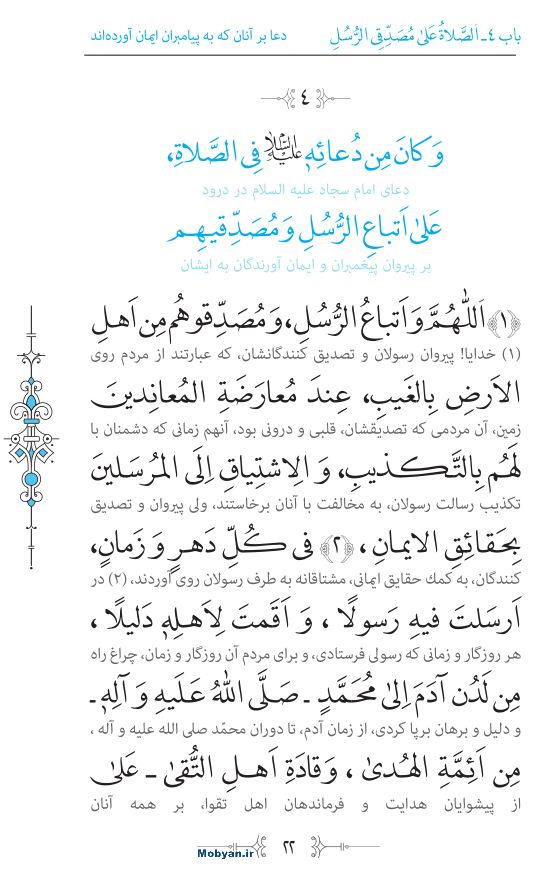 باب ٤ـ اَلصَّلاةُ عَلىٰ مُصَدِّقِی الرُّسُلِ دعا بر آنان که به پیامبران ایمان آورده‌اند
٤
وَ کانَ مِن دُعائِهِ علیه السّلام فِی الصَّلاةِ،
دعای امام سجاد علیه السلام در درود
عَلیٰ اَتباعِ الرُّسُلِ وَ مُصَدِّقیهِم
بر پیروان پیغمبران و ایمان آورندگان به ایشان
﴿١﴾ اَللّٰهُمَّ وَ اَتباعُ الرُّسُلِ، وَ مُصَدِّقوهُم مِن اَهلِ
(۱) خدایا! پیروان رسولان و تصدیق کنندگانشان، که عبارتند از مردم روی
الاَرضِ بِالغَیبِ، عِندَ مُعارَضَةِ المُعانِدینَ
زمین، آن مردمی که تصدیقشان، قلبی و درونی بود، آنهم زمانی که دشمنان با
لَهُم بِالتَّکذیبِ، وَ الِاشتِیاقِ اِلَی المُرسَلینَ
تکذیب رسالت رسولان، به مخالفت با آنان برخاستند، ولی پیروان و تصدیق
بِحَقائِقِ الایمانِ ، ﴿٢﴾ فی کُلِّ دَهرٍ وَ زَمانٍ،
کنندگان، به کمك حقایق ایمانی، مشتاقانه به طرف رسولان روی آوردند، (۲) در
اَرسَلتَ فیهِ رَسولًا ، وَ اَقَمتَ لِاَهلِهِ دَلیلًا ،
هر روزگار و زمانی که رسولی فرستادی، و برای مردم آن روزگار و زمان، چراغ راه
مِن لَدُن آدَمَ اِلیٰ مُحَمَّدٍ ـ صَلَّی اللّٰهُ عَلَیهِ وَ آلِهِ ـ
و دلیل و برهان برپا کردی، از زمان آدم، تا دوران محمّد صلی الله علیه و آله ،
مِن اَئِمَّةِ الهُدیٰ ، وَ قادَةِ اَهلِ التُّقیٰ ـ عَلیٰ
از پیشوایان هدایت و فرماندهان اهل تقوا، بر همه آنان
٢٢
Mobyan.ir